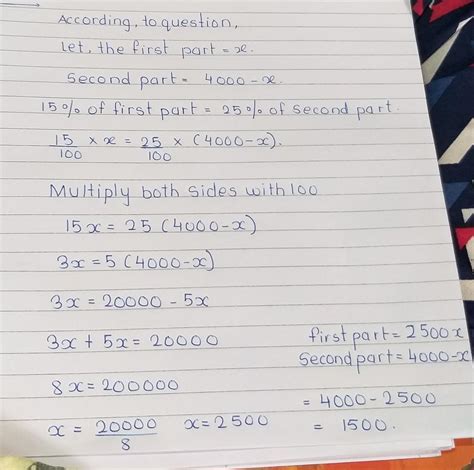 According, to question,
Let, the first part = x.
Second part = 4000 - x.
15% of first part = 25% of second part.
15/100 × x = 25/100 × (4000 - x).
Multiply both sides with 100
15x = 25 (4000 - x)
3x = 5 (4000 - x)
3x = 20000 - 5x
3x + 5x = 20000
8x = 200000
x = 20000/8 x = 2500
first part = 2500x
Second part = 4000 - x
= 4000 - 2500
= 1500.